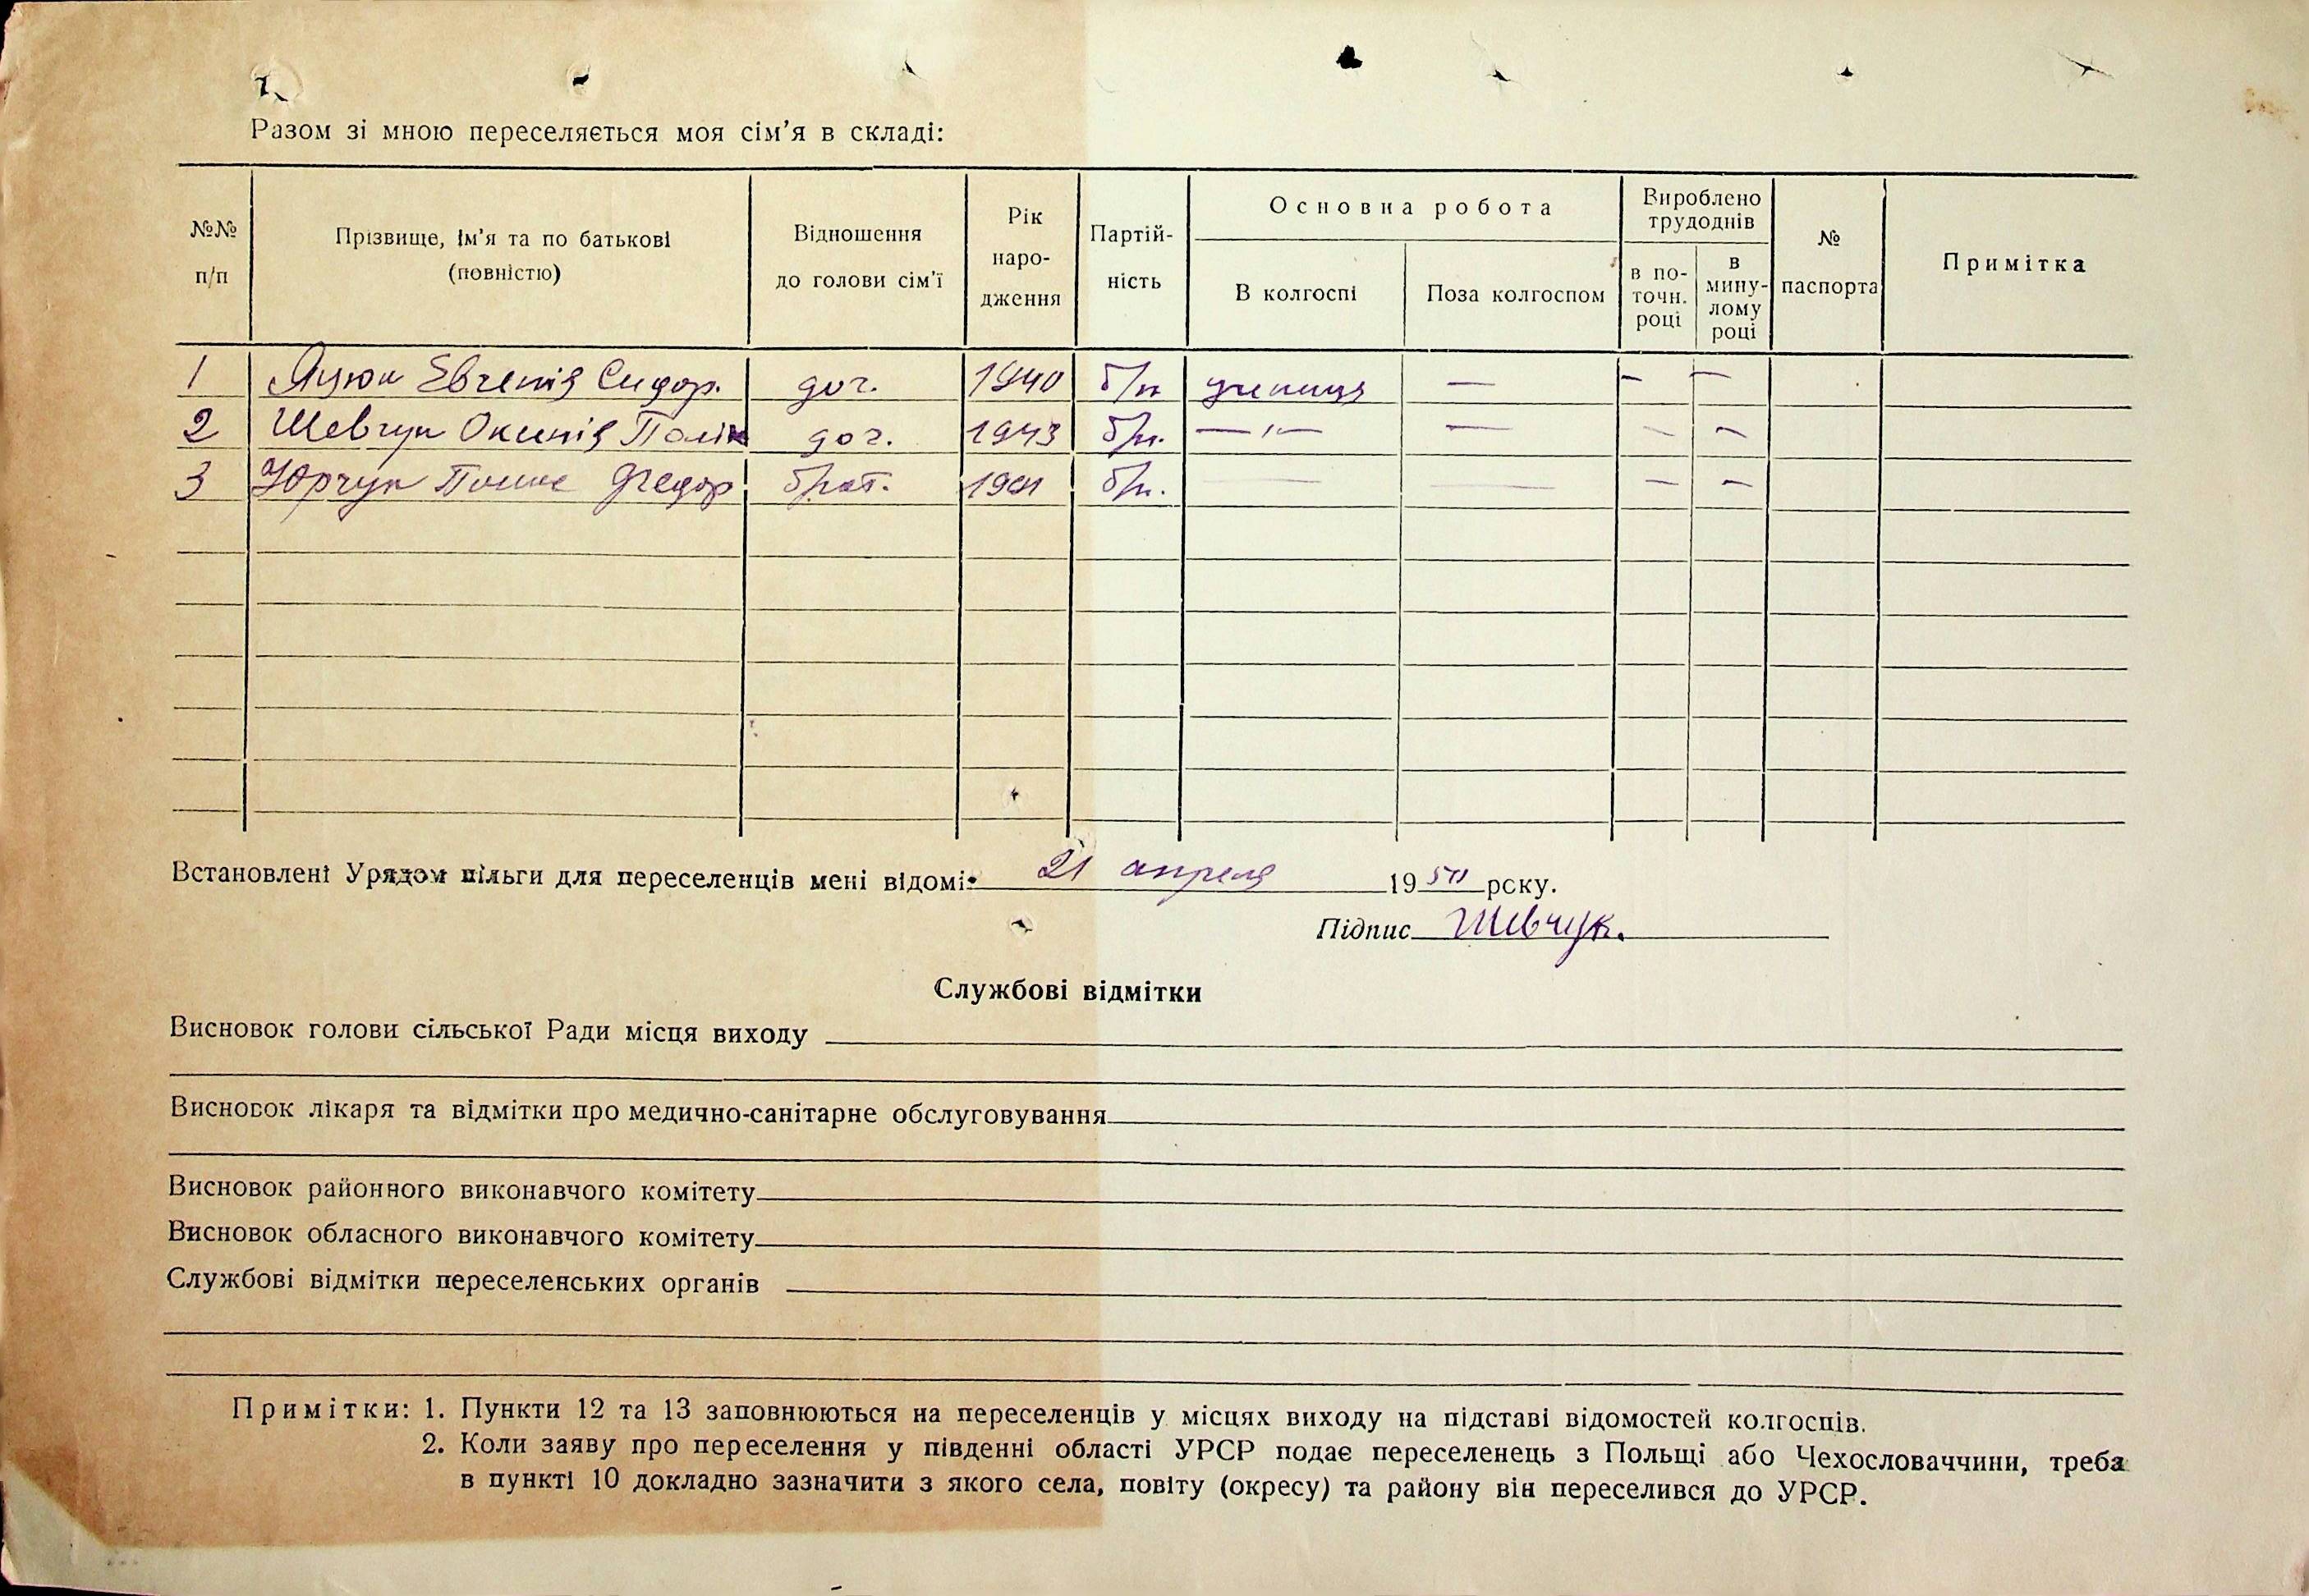 Разом зі мною переселяється моя сім'я в складі:
№№ п/п
Прізвище, ім'я та по батькові (повністю)
Відношення до голови сім'ї
Рік народження
Партійність
Основна робота
В колгоспі
Поза колгоспом
Вироблено трудоднів
в поточн. році
в минулому році
№ паспорта
Примітка
1 Яцюк Евгенія Сидор. доч. 1940 б/п учениця — — —
2 Шевчук Оксенія доч. 1943 б/п. —"— — — —
3 Юрчук Федор брат. б/п. — — — —
Встановлені Урядом пільги для переселенців мені відомі. 21 апреля 1950 року.
Підпис Шевчук.
Службові відмітки
Висновок голови сільської Ради місця виходу
Висновок лікаря та відмітки про медично-санітарне обслуговування
Висновок районного виконавчого комітету
Висновок обласного виконавчого комітету
Службові відмітки переселенських органів
Примітки: 1. Пункти 12 та 13 заповнюються на переселенців у місцях виходу на підставі відомостей колгоспів.
2. Коли заяву про переселення у південні області УРСР подає переселенець з Польщі або Чехословаччини, треба
в пункті 10 докладно зазначити з якого села, повіту (окресу) та району він переселився до УРСР.